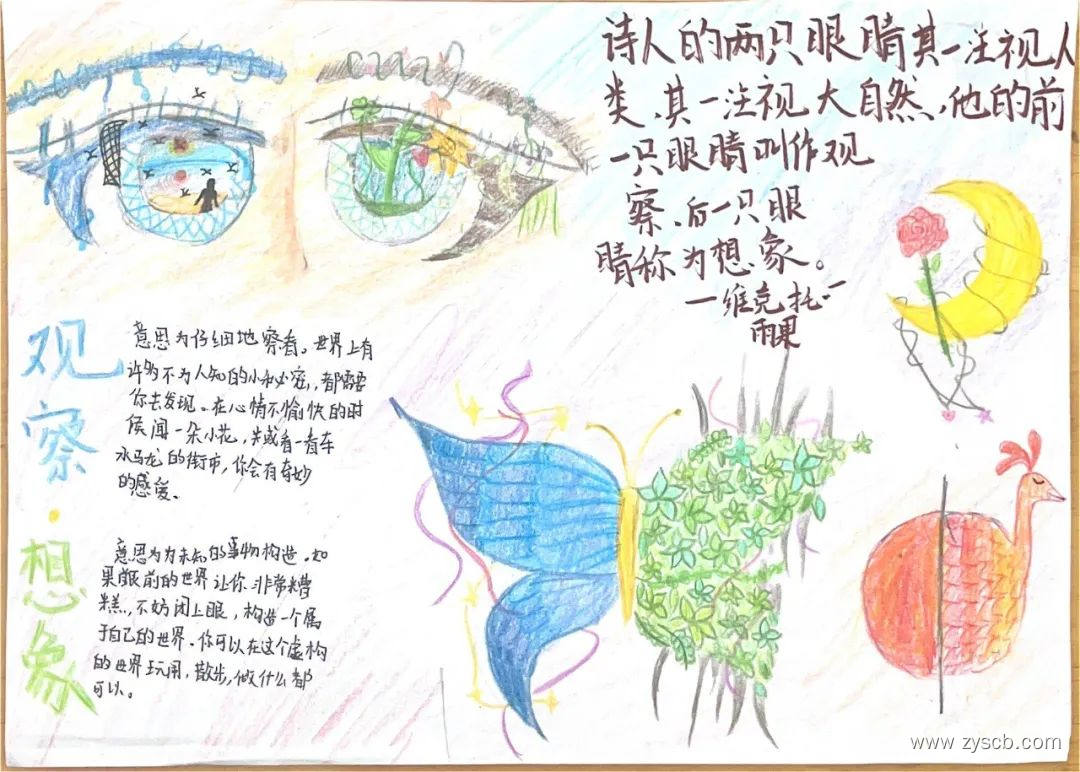 诗人的两只眼睛其一注视人
类、其一注视大自然、他的前
一只眼睛叫作观
察、后一只眼
睛称为想象。
一维克托·一
雨果
观察·想象
意思为仔细地察看。世界上有
许多不为人知的小秘密,都需要
你去发现。在心情不愉快的时
候闻一朵小花,或看一看车
水马龙的街市,你会有奇妙
的感受。
意思为为未知的事物构造。如
果眼前的世界让你非常糟
糕,不妨闭上眼,构造一个属
于自己的世界。你可以在这个虚构
的世界玩闹,散步,做什么都
可以。
www.zyscb.com